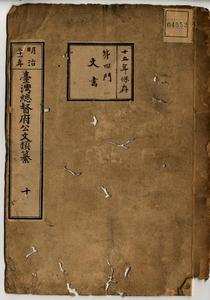 十五年保存
第四門
文書
明治
三十一年
臺灣總督府公文類纂
十